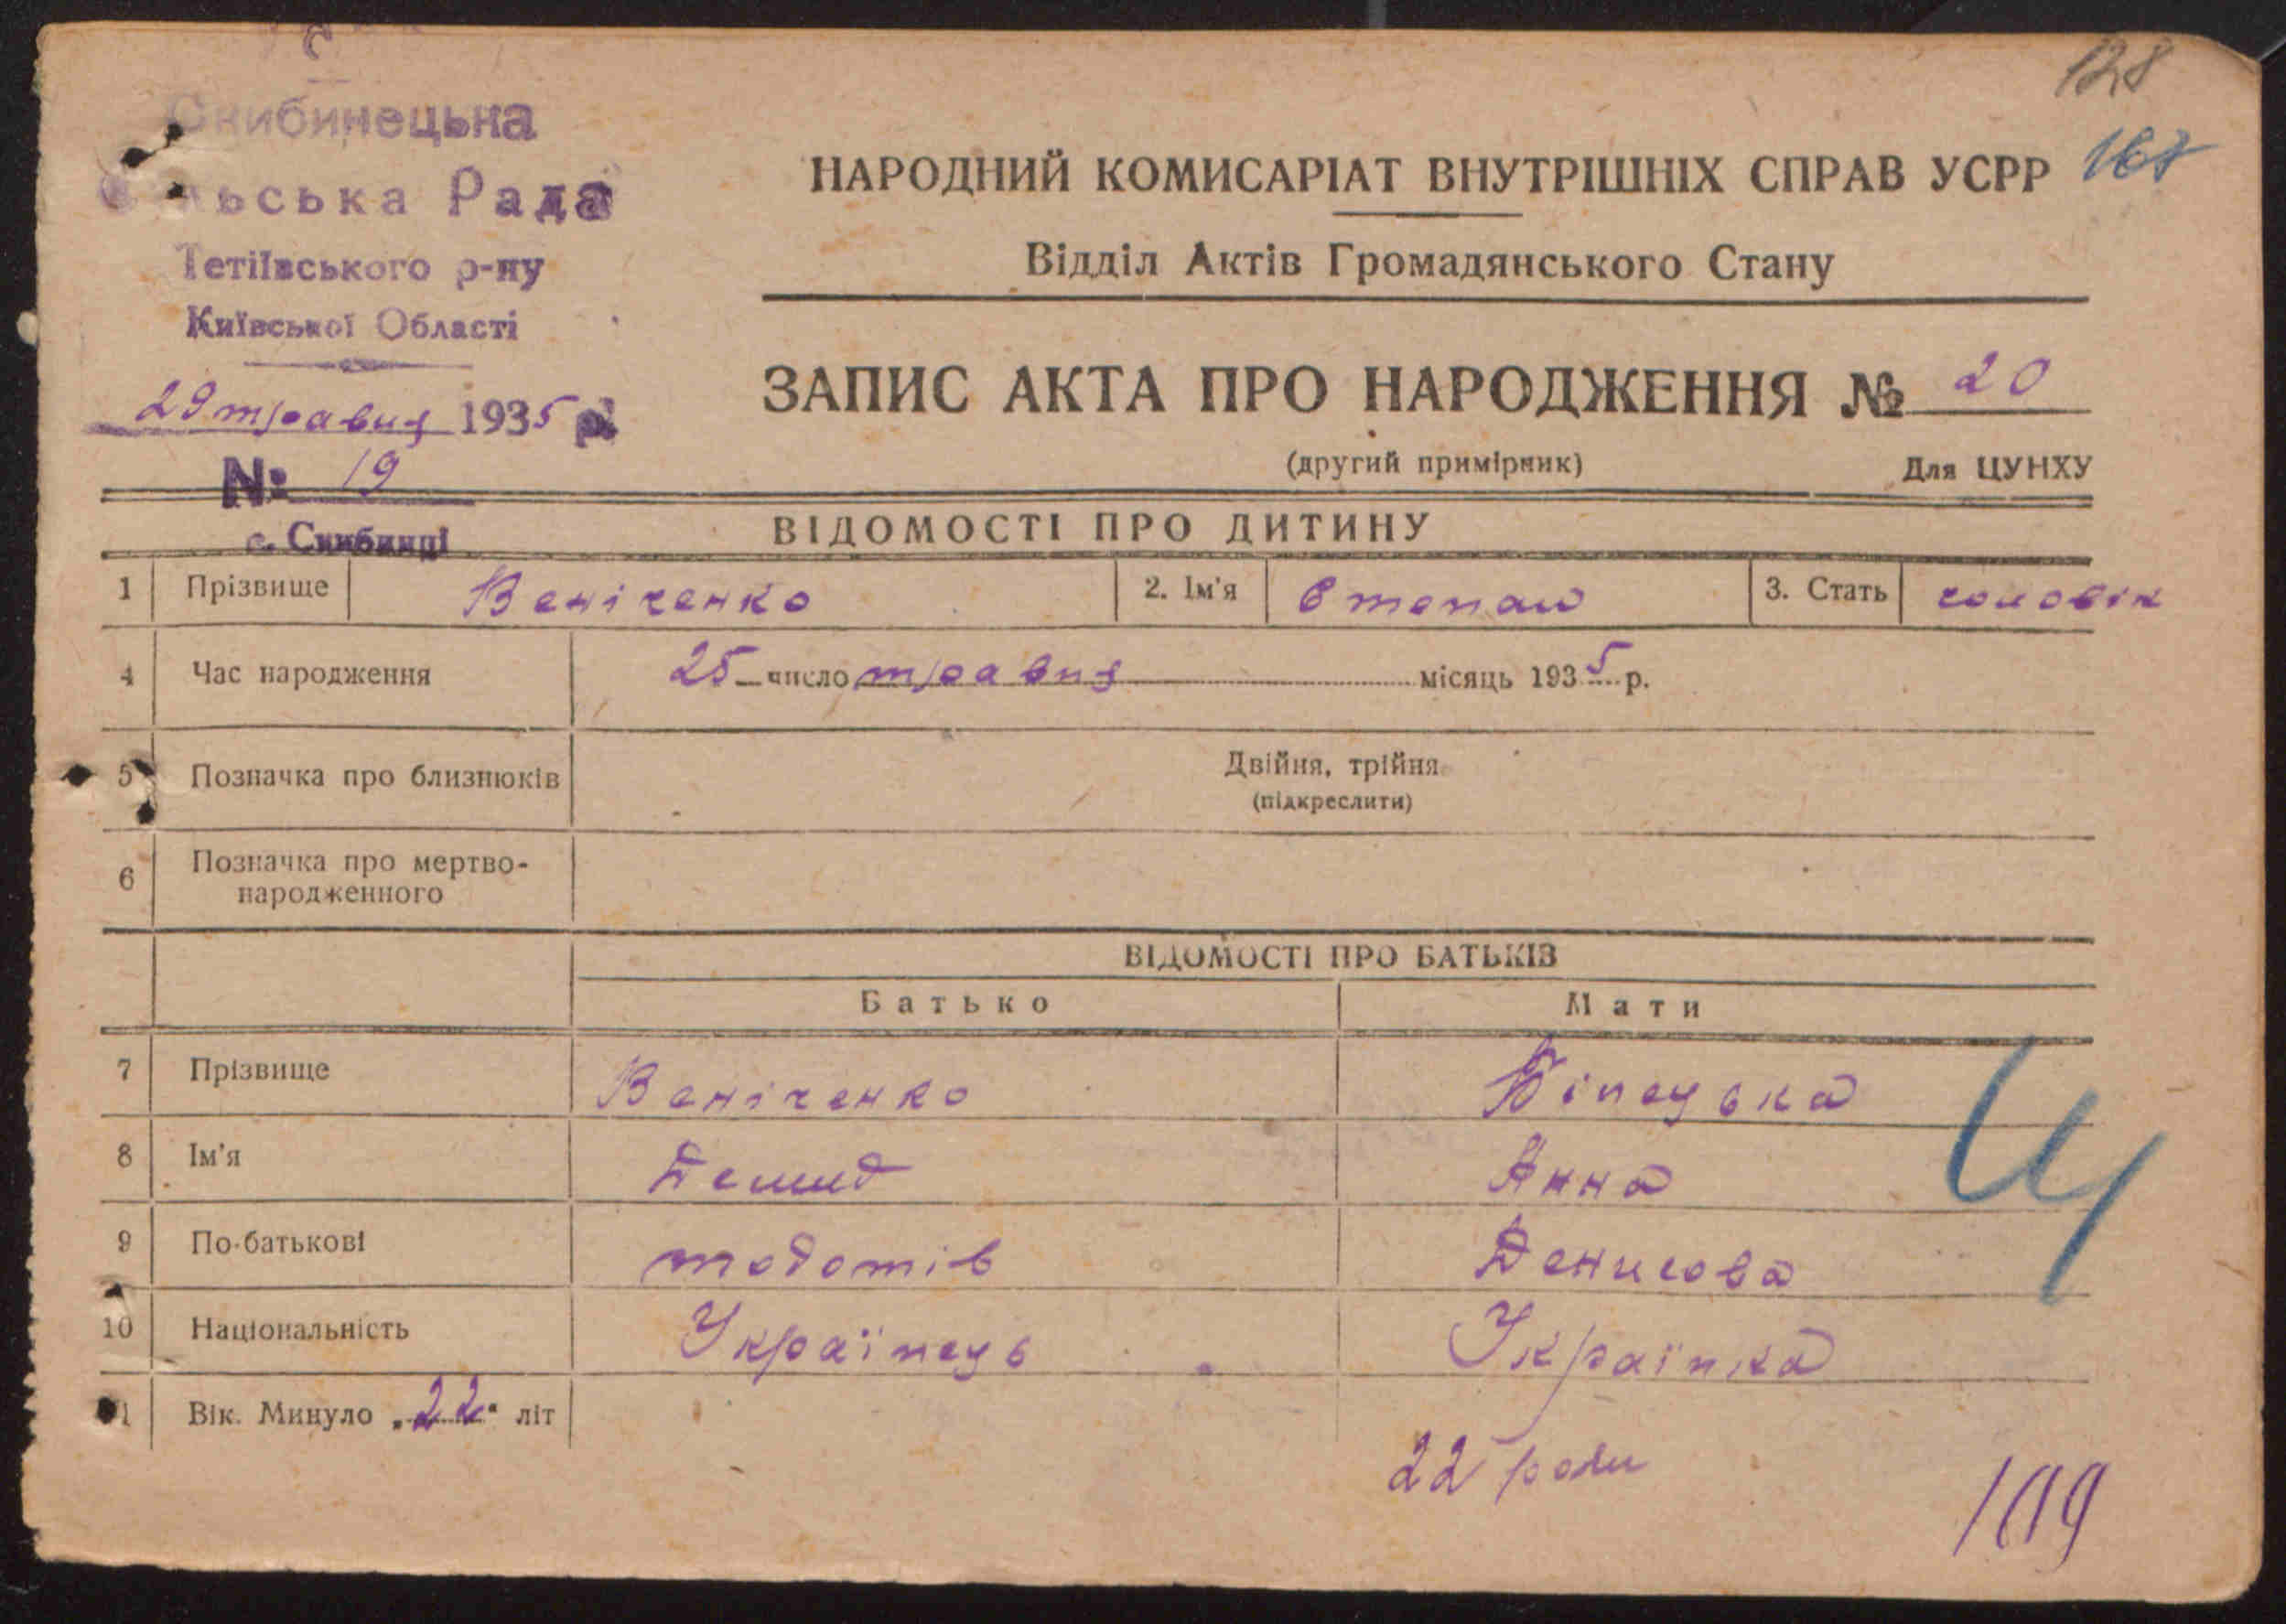 128
Скибинецька
Сільська Рада
Тетіївського р-ну
Київської Області
29 травня 1935 р.
№ 19
с. Скибинці
НАРОДНИЙ КОМИСАРІАТ ВНУТРІШНІХ СПРАВ УСРР
Відділ Актів Громадянського Стану
ЗАПИС АКТА ПРО НАРОДЖЕННЯ № 20
(другий примірник) Для ЦУНХУ
ВІДОМОСТІ ПРО ДИТИНУ
1 Прізвище Веніченко 2. Ім'я Степан 3. Стать чоловік
4 Час народження 25 число травня місяць 1935 р.
5 Позначка про близнюків Двійня, трійня
(підкреслити)
6 Позначка про мертво-
народженного
ВІДОМОСТІ ПРО БАТЬКІВ
Батько Мати
7 Прізвище Веніченко
8 Ім'я Демид Анна
9 По-батькові тодотів Денисова
10 Національність Українець Українка
11 Вік. Минуло „22" літ
22 роки